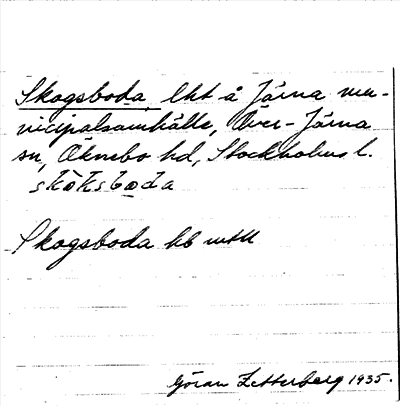 Skogsboda, lht å Järna mu-
nicipalsamhälle, Över-Järna
sn, Öknebo hd, Stockholms l.
skòksboda
Skogsboda hb wtH
Göran Zetterberg 1935.